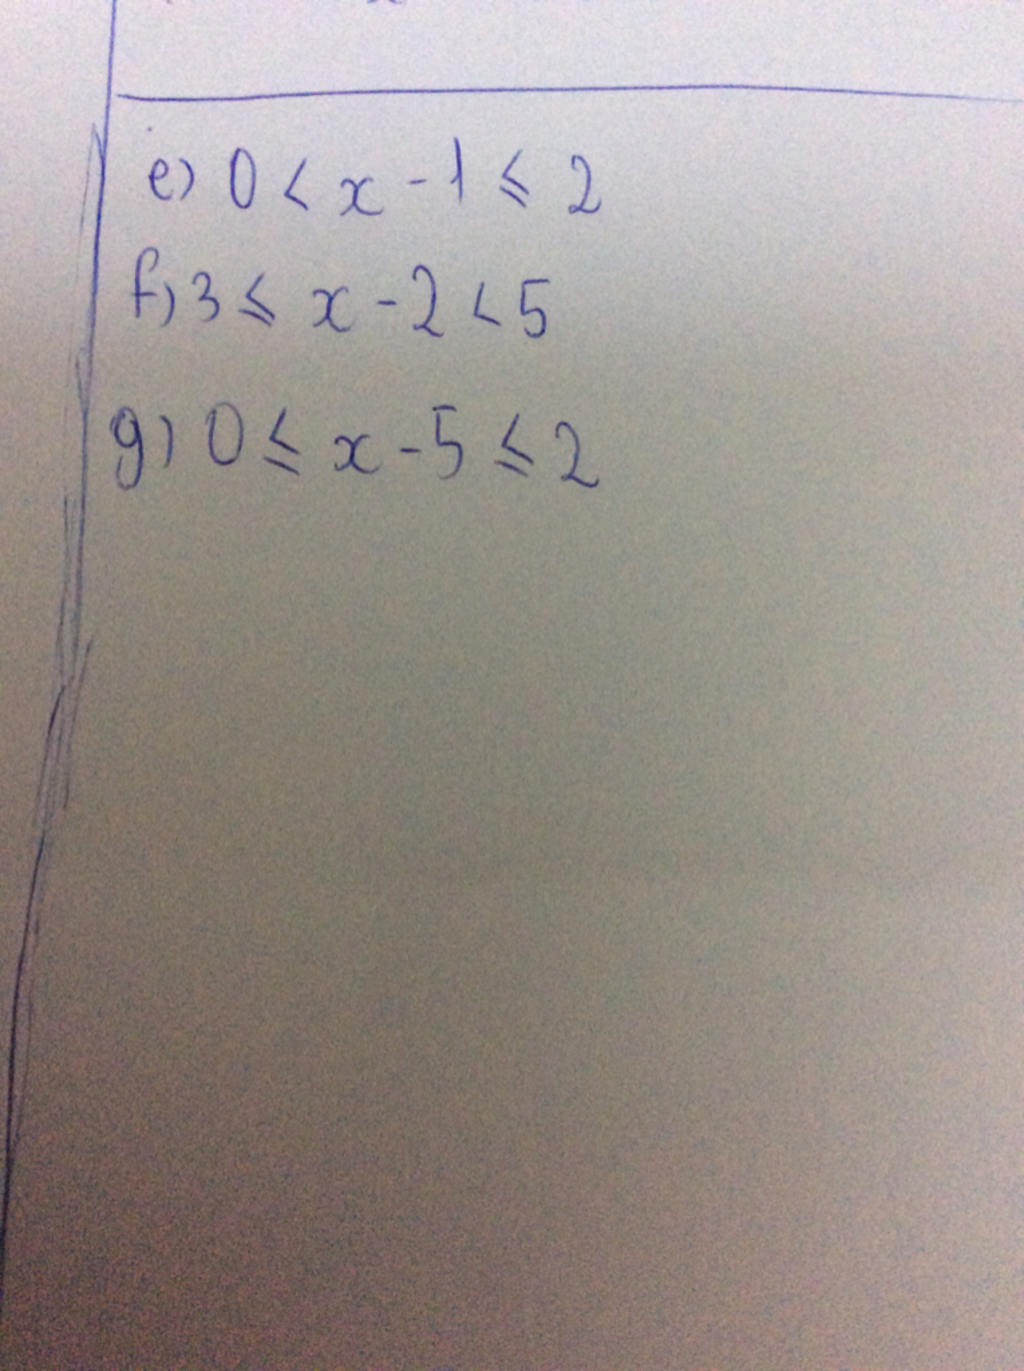 e) 0 < x - 1 ⩽ 2
f) 3 ⩽ x - 2 < 5
g) 0 ⩽ x - 5 ⩽ 2